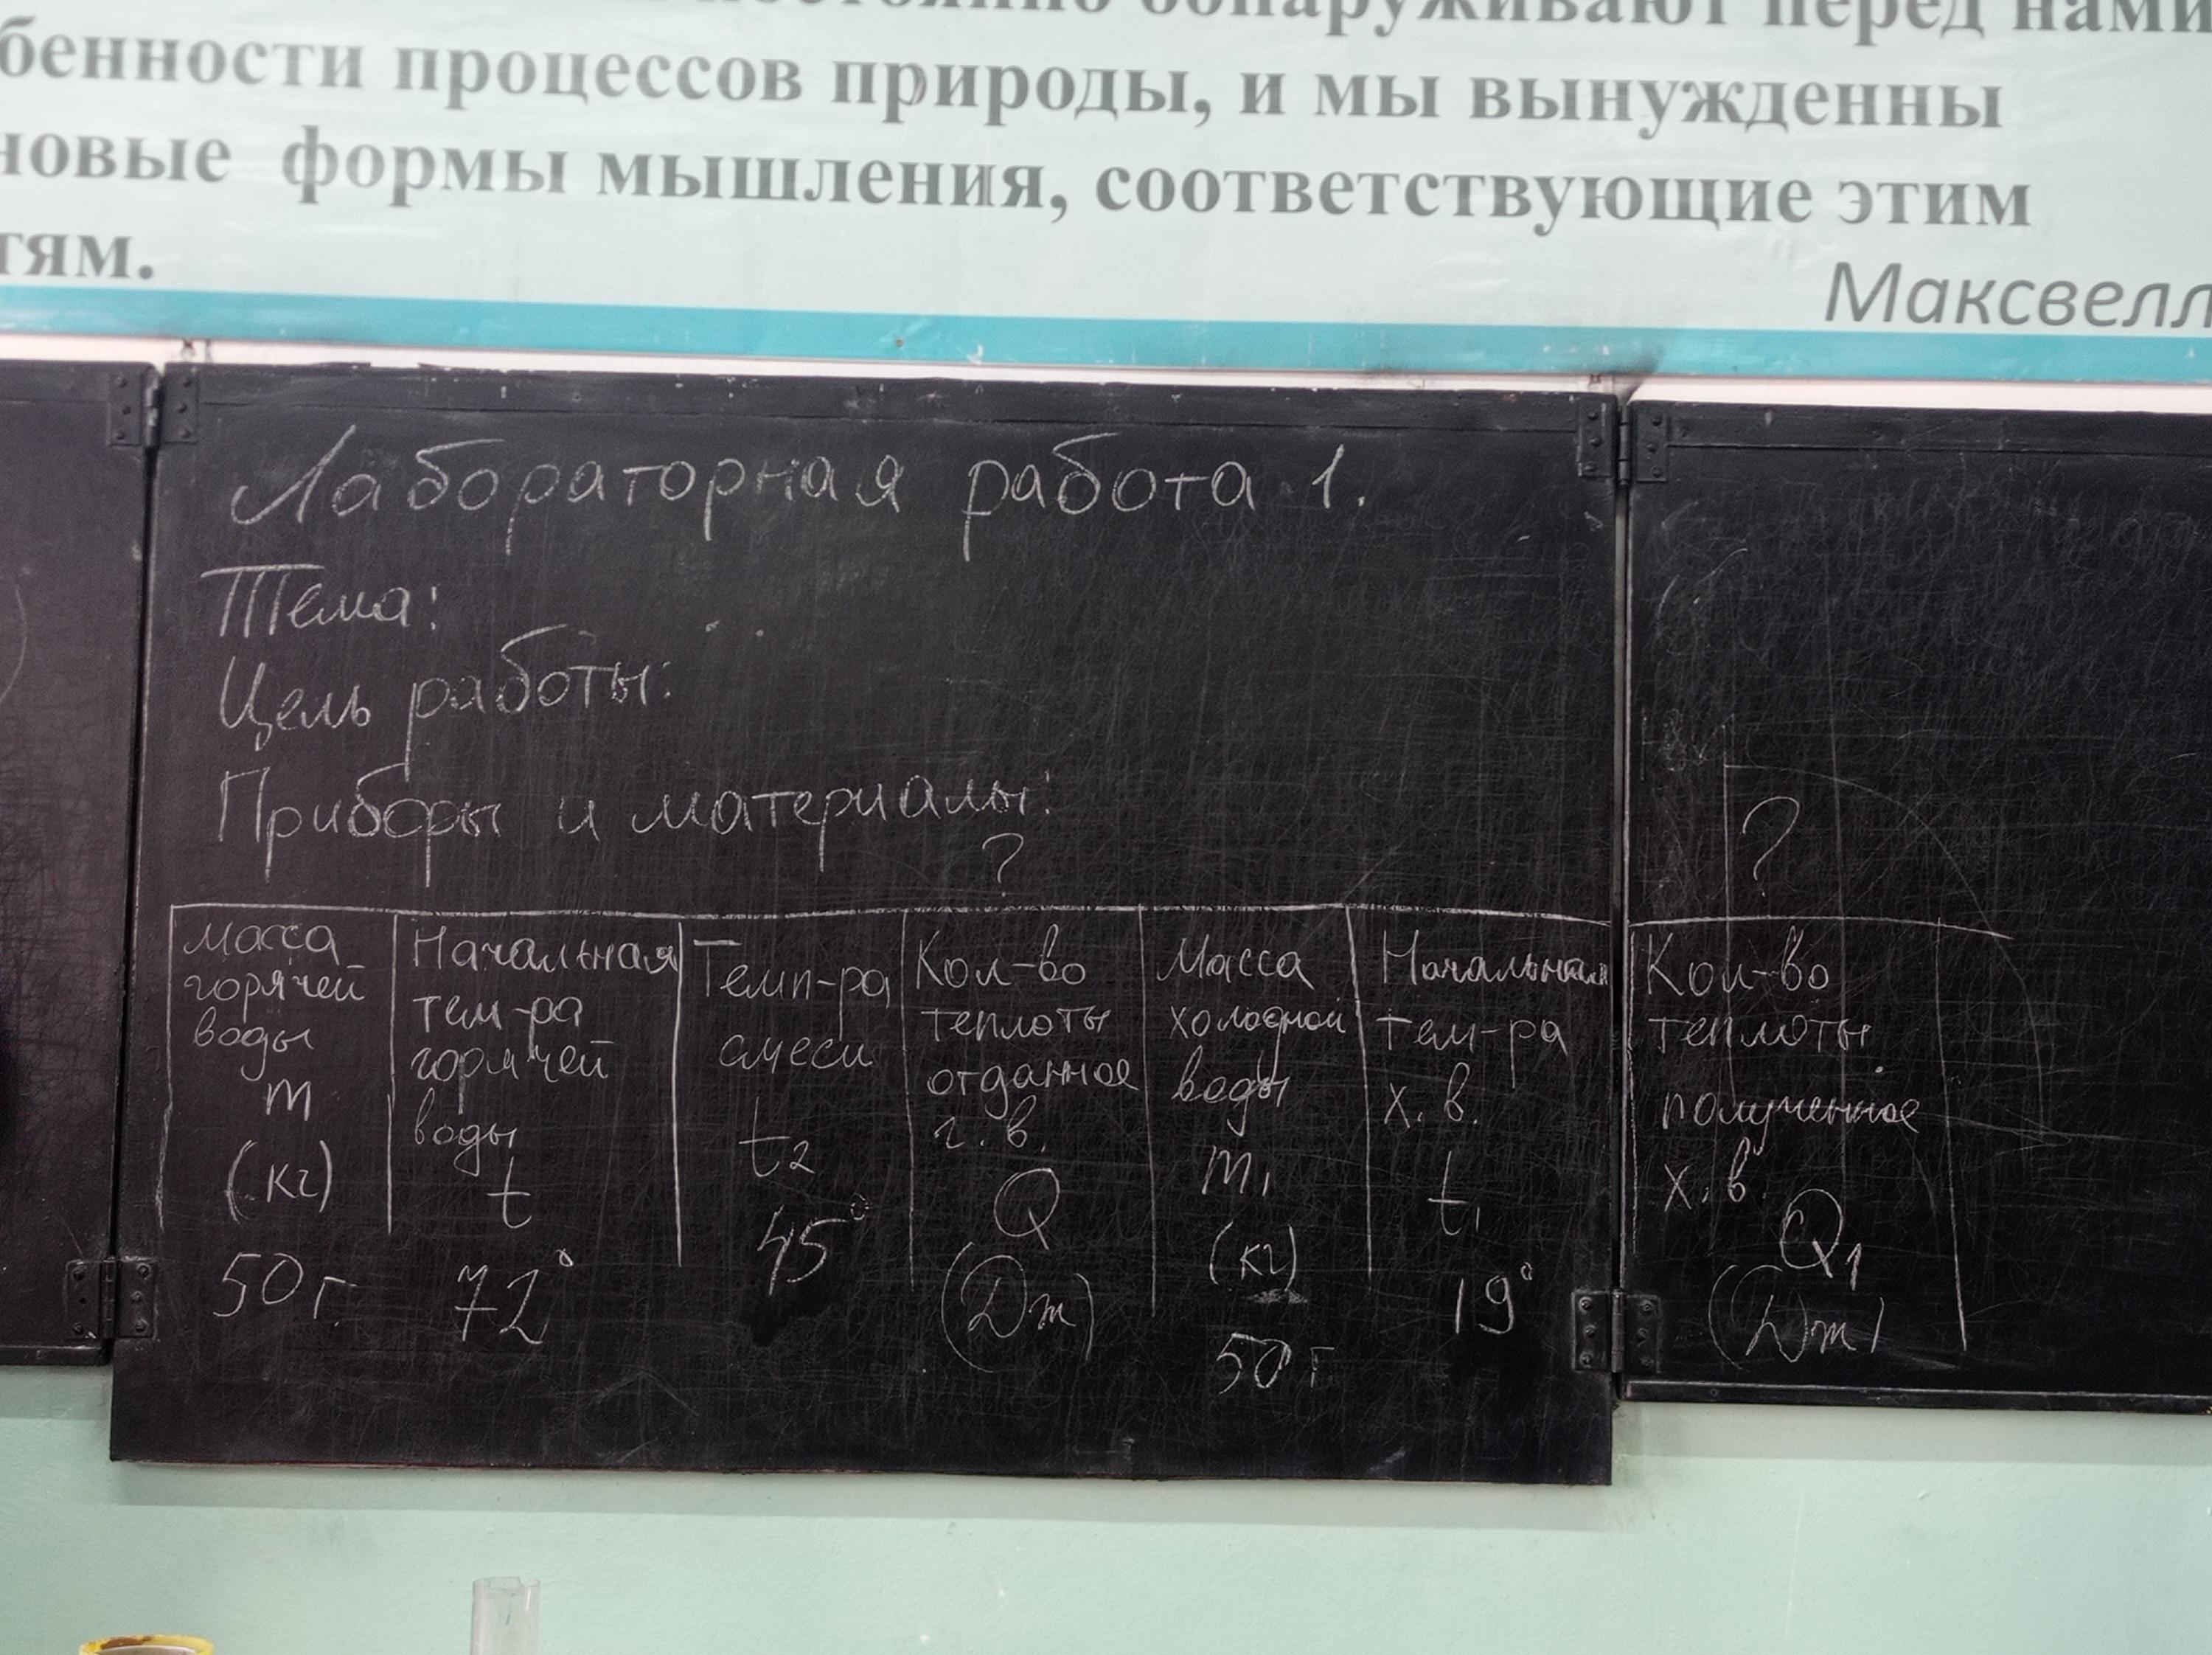 постоянно обнаруживают перед нами
бенности процессов природы, и мы вынужденны
новые формы мышления, соответствующие этим
тям.
Максвелл
Лабораторная работа 1.
Тема:
Цель работы:
Приборы и материалы:
?
?
Масса
горячей
воды
m
(кг)
50 г.
Начальная
тем-ра
горячей
воды
t
72°
Темп-ра
смеси
t2
45°
Кол-во
теплоты
отданное
г. в.
Q
(Дж)
Масса
холодной
воды
m1
(кг)
50 г
Начальная
тем-ра
х. в.
t1
19°
Кол-во
теплоты
полученное
х. в.
Q1
(Дж)